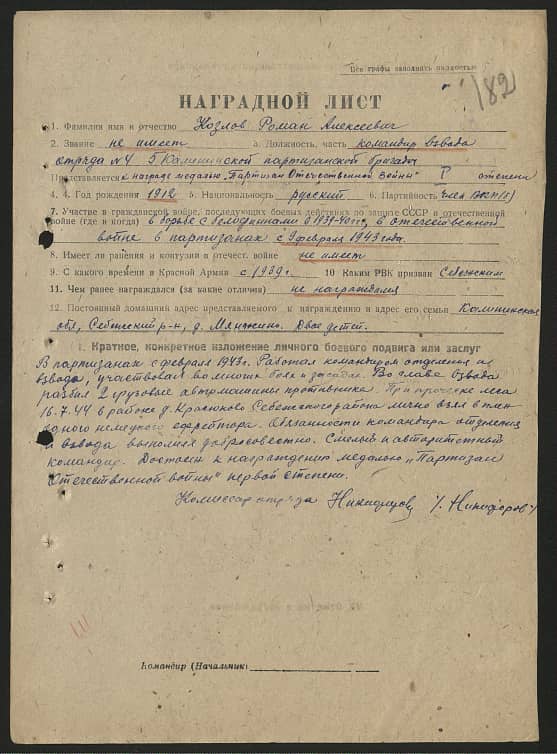 Все графы заполнять полностью
182
НАГРАДНОЙ ЛИСТ
1. Фамилия имя и отчество Козлов Роман Алексеевич
2. Звание не имеет а. Должность, часть командир взвода
отряда №4 5 Калининской партизанской бригады
Представляется к награде медалью „Партизан Отечественной войны" I степени
4. 4. Год рождения 1912 5. Национальность русский 6. Партийность член ВКП(б)
7. Участие в гражданской войне, последующих боевых действиях по защите СССР в отечественной
войне (где и когда) в борьбе с белофиннами в 1939-40гг, в отечественной
войне в партизанах с февраля 1943 года.
8. Имеет ли ранения и контузии в отечест. войне не имеет
9. С какого времени в Красной Армии с 1939 г 10 Каким РВК призван Себежским
11. Чем ранее награждался (за какие отличия) не награждался
12. Постоянный домашний адрес представляемого к награждению и адрес его семьи Калининская
обл, Себежский р-н, д. Двое детей.
I. Краткое, конкретное изложение личного боевого подвига или заслуг
В партизанах с февраля 1943г. Работал командиром отделения и
взвода, участвовал во многих боях и засадах. Во главе взвода
разбил 2 грузовые автомашины противника. При прочёске леса
16.7.44 в районе д. Красиково Себежского района лично взял в плен
одного немецкого ефрейтора. Обязанности командира отделения
и взвода выполнял добросовестно. Смелый и авторитетный
командир. Достоин к награждению медалью „Партизан
Отечественной войны" первой степени.
Комиссар отряда Никифоров /Никифоров/
Командир (Начальник)